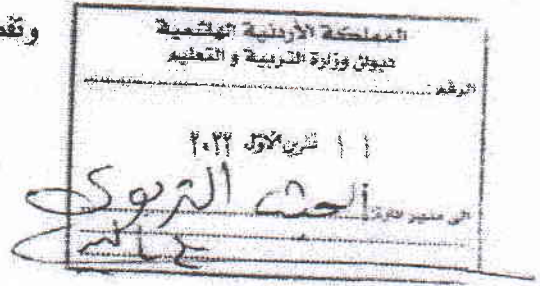 المملكة الأردنية الهاشمية
ديوان وزارة التربية و التعليم
الرقم:
١١ تشرين الأول ٢٠٢٢
الى مدير إدارة البحث التربوي